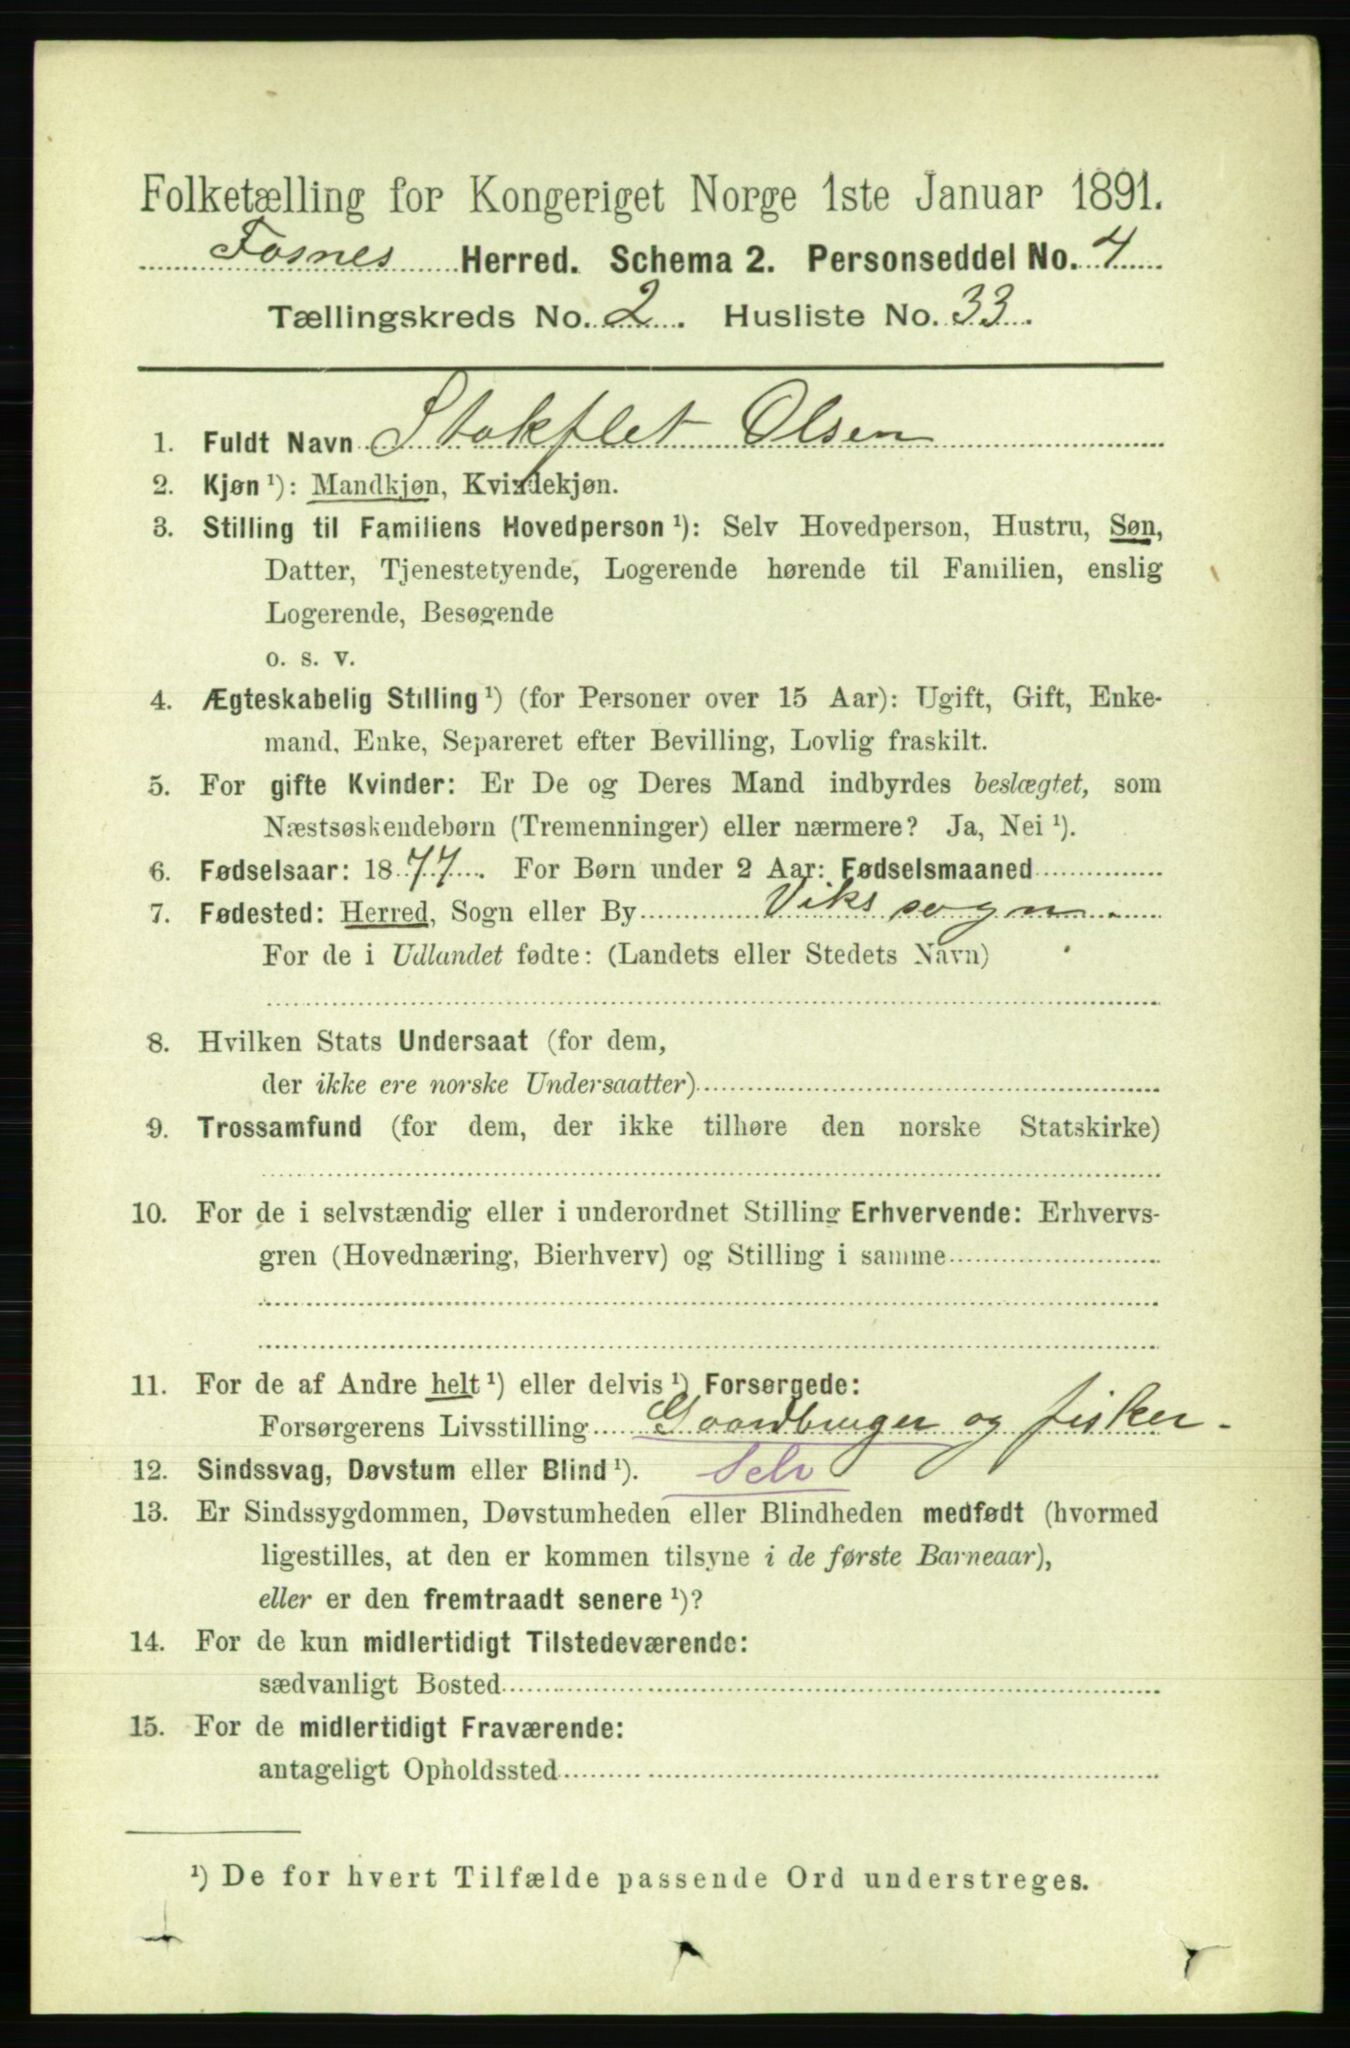 Folketælling for Kongeriget Norge 1ste Januar 1891.
Fosnes Herred. Schema 2. Personseddel No. 4
Tællingskreds No. 2. Husliste No. 33.
1. Fuldt Navn Stokflet Olsen
2. Kjøn ¹): Mandkjøn, Kvindekjøn.
3. Stilling til Familiens Hovedperson ¹): Selv Hovedperson, Hustru, Søn,
Datter, Tjenestetyende, Logerende hørende til Familien, enslig
Logerende, Besøgende
o. s. v.
4. Ægteskabelig Stilling ¹) (for Personer over 15 Aar): Ugift, Gift, Enke-
mand, Enke, Separeret efter Bevilling, Lovlig fraskilt.
5. For gifte Kvinder: Er De og Deres Mand indbyrdes beslægtet, som
Næstsøskendebørn (Tremenninger) eller nærmere? Ja, Nei ¹).
6. Fødselsaar: 1877. For Børn under 2 Aar: Fødselsmaaned
7. Fødested: Herred, Sogn eller By Viks sogn
For de i Udlandet fødte: (Landets eller Stedets Navn)
8. Hvilken Stats Undersaat (for dem,
der ikke ere norske Undersaatter)
9. Trossamfund (for dem, der ikke tilhøre den norske Statskirke)
10. For de i selvstændig eller i underordnet Stilling Erhvervende: Erhvervs-
gren (Hovednæring, Bierhverv) og Stilling i samme
11. For de af Andre helt ¹) eller delvis ¹) Forsørgede:
Forsørgerens Livsstilling Gaardbruger og fisker -
12. Sindssvag, Døvstum eller Blind ¹). Selv
13. Er Sindssygdommen, Døvstumheden eller Blindheden medfødt (hvormed
ligestilles, at den er kommen tilsyne i de første Barneaar),
eller er den fremtraadt senere ¹)?
14. For de kun midlertidigt Tilstedeværende:
sædvanligt Bosted
15. For de midlertidigt Fraværende:
antageligt Opholdssted
¹) De for hvert Tilfælde passende Ord understreges.